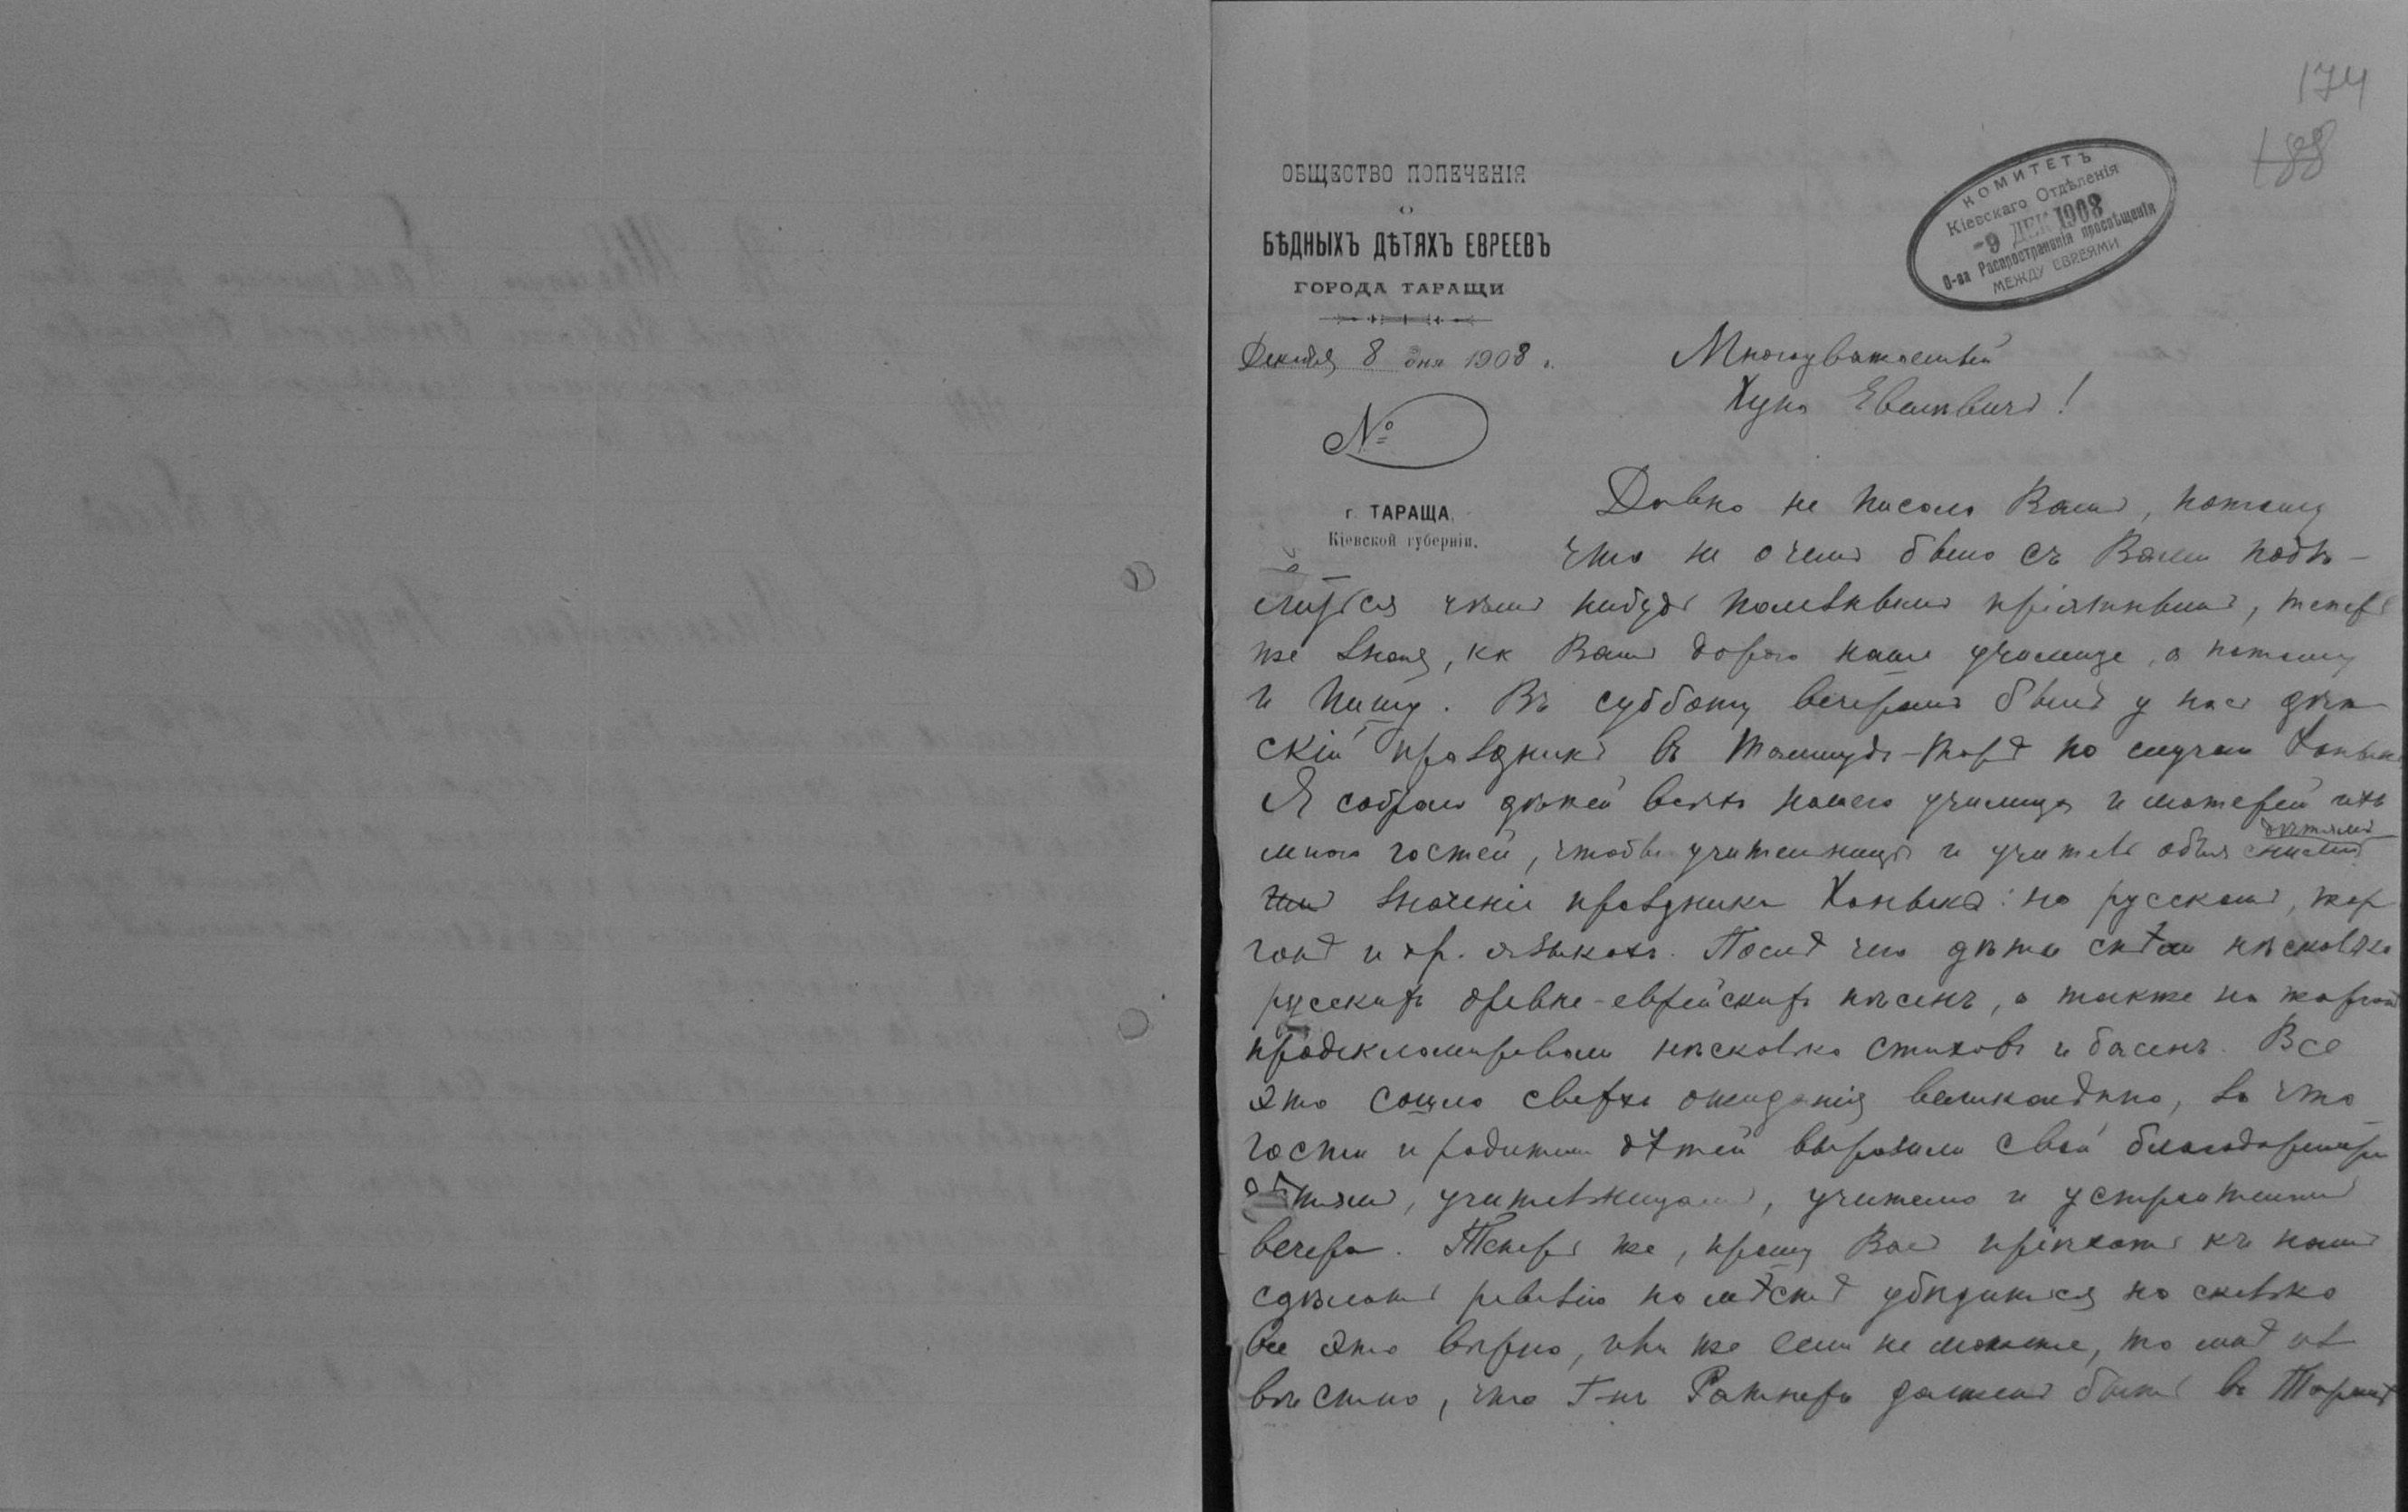 174
188
ОБЩЕСТВО ПОПЕЧЕНІЯ
О
БѢДНЫХЪ ДѢТЯХЪ ЕВРЕЕВЪ
ГОРОДА ТАРАЩИ
КОМИТЕТЪ
Кіевскаго Отдѣленія
-9 ДЕК 1908
О-ва Распространенія просвѣщенія
МЕЖДУ ЕВРЕЯМИ
Декабря 8 дня 1908 г.
№
г. ТАРАЩА,
Кіевской губерніи.
Многоуважаемый
Хуна !
Давно не писалъ Вамъ, потому
что не очень было съ Вами подѣ-
литься чѣмъ нибудь пріятнымъ, теперь
же знаю, кк Вамъ дорого наше училище, а потому
и пишу. Въ субботу вечеромъ былъ у насъ дѣт
скій праздникъ въ Талмудъ-Торѣ по случаю Ханыка
Я собралъ дѣтей всѣхъ нашего училища и матерей ихъ
много гостей, чтобы учительницы и учитель объяснили дѣтямъ
значеніе праздника Ханыка: на русскомъ, жар
гонѣ и др. языкахъ. Послѣ чего дѣти спѣли нѣсколько
русскихъ древне-еврейскихъ пѣсенъ, а также на жаргонѣ
продекламировали нѣсколько стиховъ и басенъ. Все
это сошло сверхъ ожиданія великолѣпно, за что
гости и родители дѣтей выразили свои
дѣтямъ, учительницамъ, учителю и
вечера. Теперь же, прошу Васъ пріѣхать къ намъ
сдѣлать ревизію на мѣстѣ убѣдиться на сколько
все это вѣрно, если не можете, то мнѣ из
вѣстно, что Г-нъ Ратнеръ долженъ быть въ Таращѣ